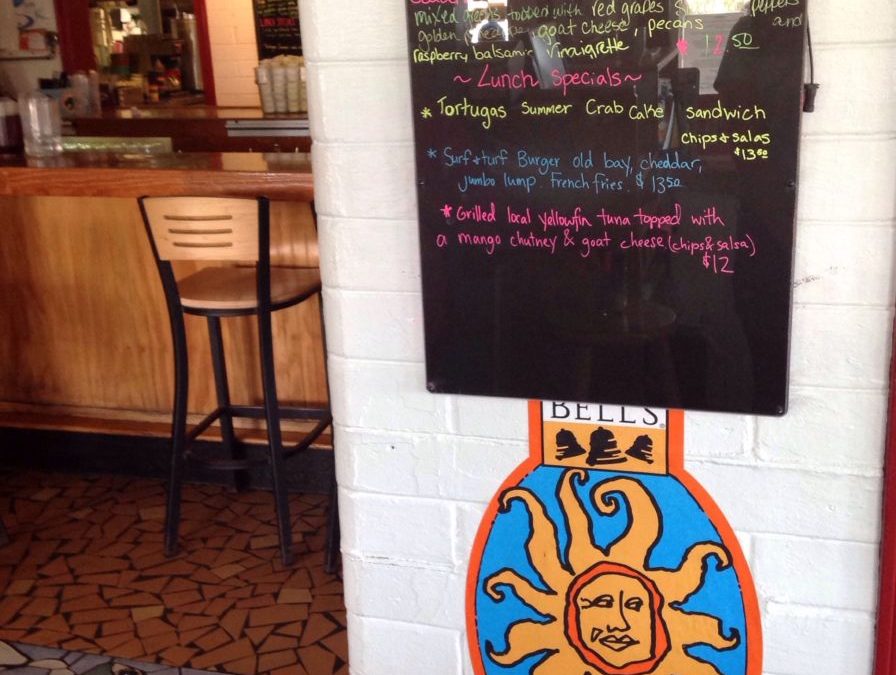 mixed greens topped with red grapes
golden goat cheese, pecans and
raspberry balsamic Vinaigrette * 12 50
~ Lunch Specials ~
* Tortugas Summer Crab Cake Sandwich
chips & Salas
$13 50
* Surf & turf Burger old bay, cheddar,
jumbo lump. French fries. $ 13 50
* Grilled local yellowfin tuna topped with
a mango chutney & goat cheese (chips & salsa)
$12
BELL'S